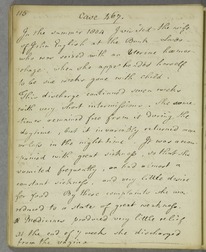 118
Case 267.
In the summer 1804 I visited the wife
of John English at the Bank, whose
who was seized with an Uterine haemor-
rhage, when she supposed herself
to be six weeks gone with child.
This discharge continued seven weeks
with very short intermissions. She some
times remained free from it during the
daytime, but it invariably returned more
or less in the night time. It was accom-
panied with great sickness, so that she
vomited frequently, or had almost a
constant sickness, and very little desire
for food. By these complaints she was
reduced to a state of great weakness
Medicines produced very little relief
at the end of 7 weeks she discharged
from the vagina